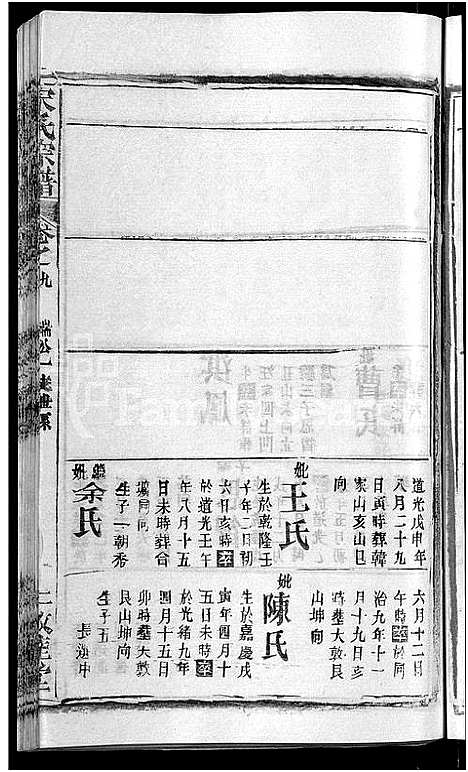 宋氏宗譜
卷之九
瑞公
世系
道光戊申年
八月二十九
日寅時葬韓
家山亥山巳
向
妣王氏
生於乾隆壬
子年二月初
六日亥時卒
於道光壬午
年八月十五
日未時葬合
墳同向
繼妣余氏
生子一朝秀
六月十二日
午時卒於同
治九年十一
月十九日亥
時葬大敦艮
山坤向
妣陳氏
生於嘉慶戊
寅年四月十
五日未時卒
於光緒九年
四月十五日
卯時葬大敦
艮山坤向
生子五
長